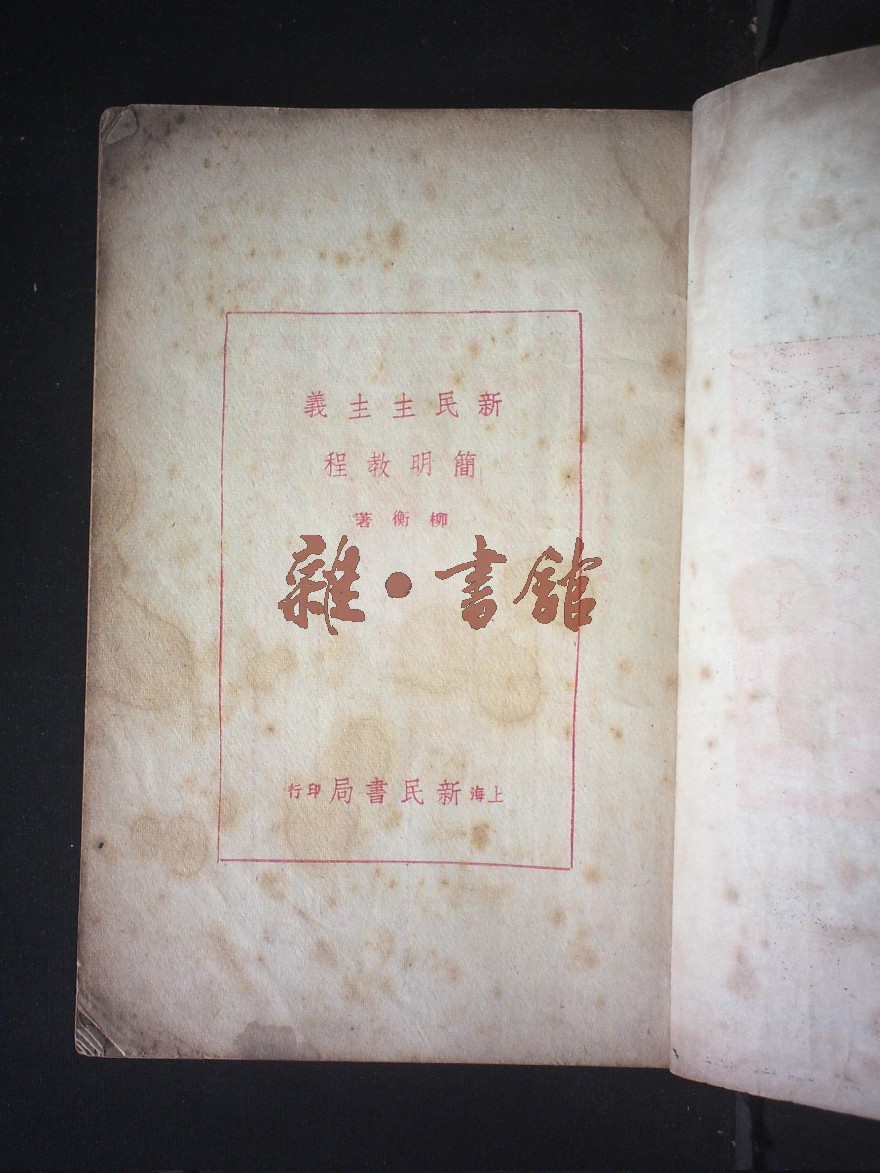 新民主主義
簡明教程
柳衡著
雜·書館
上海新民書局印行